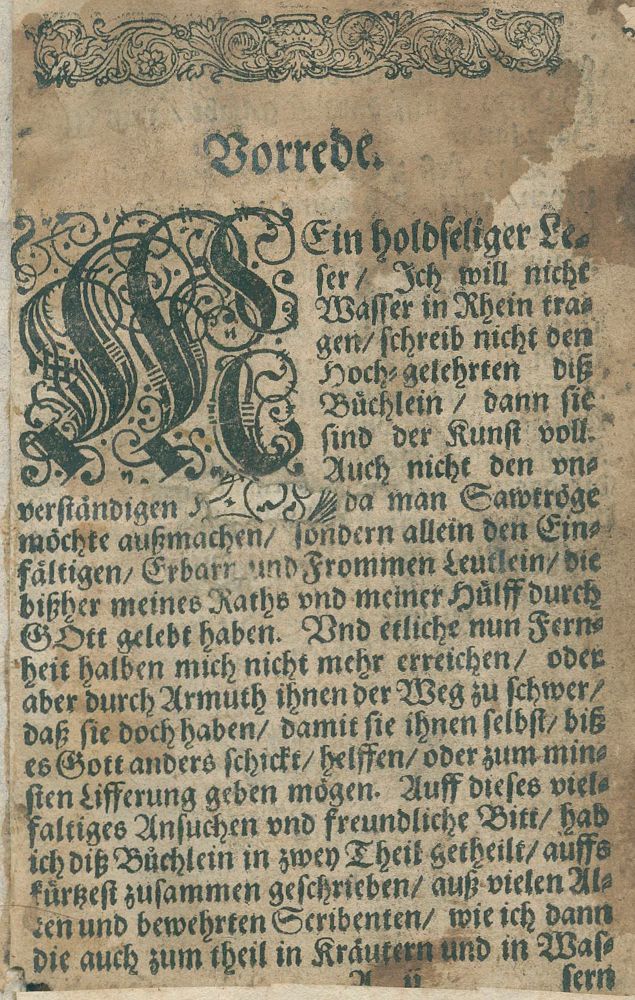 Vorrede.
MEin holdseliger Le⸗
ser / Jch will nicht
Wasser in Rhein tra⸗
gen / schreib nicht den
Hoch⸗gelehrten diß
Bůchlein / dann sie
sind der Kunst voll.
Auch nicht den vn⸗
verständigen da man Sawtröge
möchte außmachen / sondern allein den Ein⸗
fältigen / Erbarn und Frommen Leutlein / die
bißher meines Raths vnd meiner Hůlff durch
GOtt gelebt haben. Vnd etliche nun Fern⸗
heit halben mich nicht mehr erreichen / oder
aber durch Armuth ihnen der Weg zu schwer /
daß sie doch haben / damit sie ihnen selbst / biß
es Gott anders schickt / helffen / oder zum min⸗
sten Lifferung geben mögen. Auff dieses viel⸗
faltiges Ansuchen vnd freundliche Bitt / hab
ich diß Bůchlein in zwey Theil getheilt / auffs
kürtzest zusammen geschrieben / auß vielen Al⸗
ten und bewehrten Scribenten / wie ich dann
die auch zum theil in Kräutern und in Was⸗
A ij sern